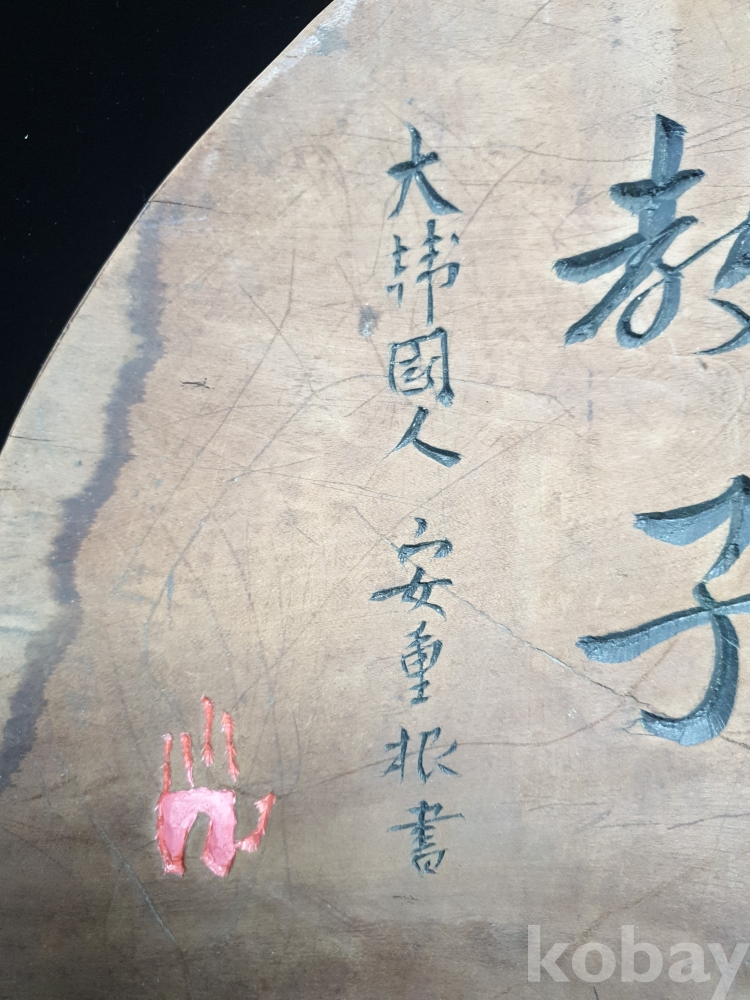 教
子
大韓國人 安重根書
kobay